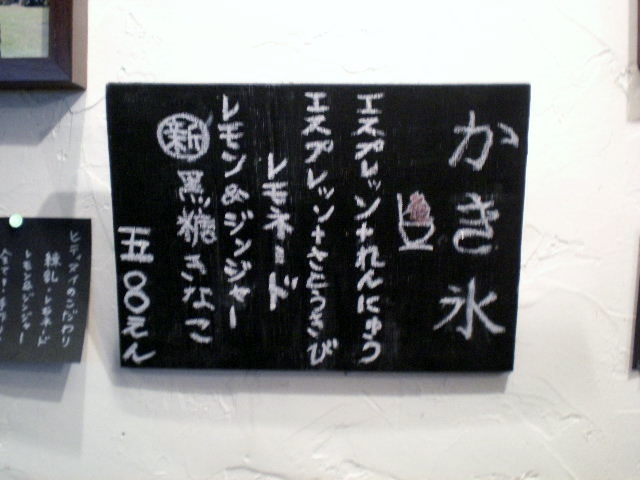 かき氷
エスプレッソ+れんにゅう
エスプレッソ+さとうきび
レモネード
レモン&ジンジャー
新 黒糖きなこ
五〇〇えん
レモン&ジンジャー